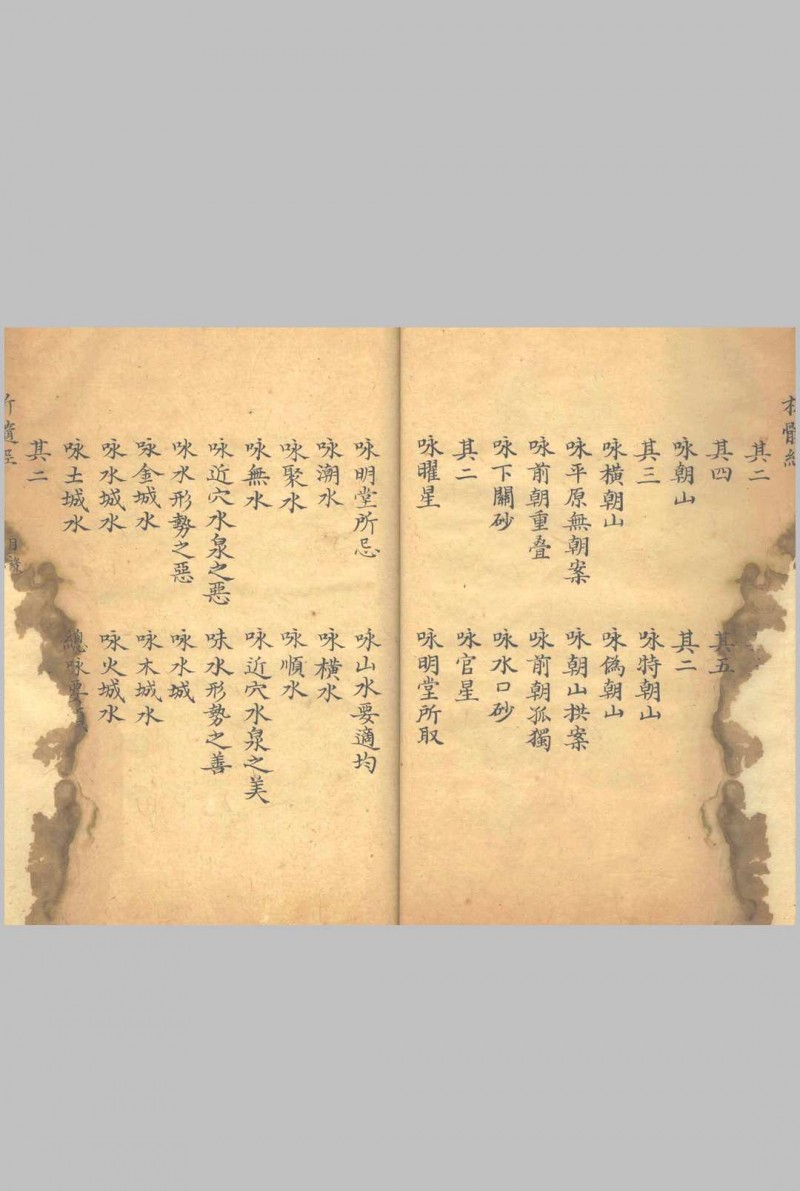 骨
其二
其四 其五
咏朝山 其二
其三 咏特朝山
咏橫朝山 咏偽朝山
咏平原無朝案 咏朝山拱案
咏前朝重叠 咏前朝孤獨
咏下關砂 咏水口砂
其二 咏官星
咏曜星 咏明堂所取
咏明堂所忌 咏山水要適均
咏潮水 咏橫水
咏聚水 咏順水
咏無水 咏近穴水泉之美
咏近穴水泉之惡 味水形勢之善
咏水形勢之惡 咏水城
咏金城水 咏木城水
咏水城水 咏火城水
咏土城水 總咏要
其二
目錄